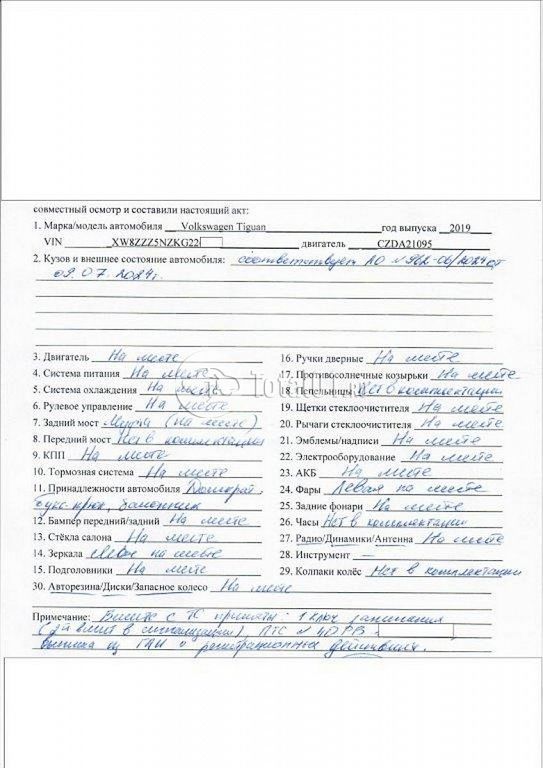 совместный осмотр и составили настоящий акт:
1. Марка/модель автомобиля Volkswagen Tiguan год выпуска 2019
VIN XW8ZZZ5NZKG22 двигатель CZDA21095
2. Кузов и внешнее состояние автомобиля: соответствует АО № 962-06/2024 от
09.07.2024г.
3. Двигатель На месте
4. Система питания На месте
5. Система охлаждения На месте
6. Рулевое управление На месте
7. Задний мост Муфта (на месте)
8. Передний мост Нет в комплектации
9. КПП На месте
10. Тормозная система На месте
11. Принадлежности автомобиля Домкрат,
букс. крюк, балонник
12. Бампер передний/задний На месте
13. Стёкла салона На месте
14. Зеркала левое на месте
15. Подголовники На месте
16. Ручки дверные На месте
17. Противосолнечные козырьки На месте
18. Пепельницы Нет в комплектации
19. Щетки стеклоочистителя На месте
20. Рычаги стеклоочистителя На месте
21. Эмблемы/надписи На месте
22. Электрооборудование На месте
23. АКБ На месте
24. Фары Левая на месте
25. Задние фонари На месте
26. Часы Нет в комплектации
27. Радио/Динамики/Антенна На месте
28. Инструмент —
29. Колпаки колёс Нет в комплектации
30. Авторезина/Диски/Запасное колесо На месте
Примечание: Вместе с ТС приняты: 1 ключ зажигания
ПТС №
выписка из ГАИ о регистрационных действиях.